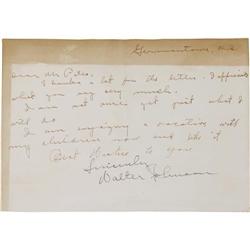 Germantown, Md.
Dear Mr
Thanks a lot for the letter. I appreciate
what you say very much.
I am not sure yet just what I
will do
I am enjoying a vacation with
my children now and like it
Best Wishes to you
Sincerely
Walter Johnson